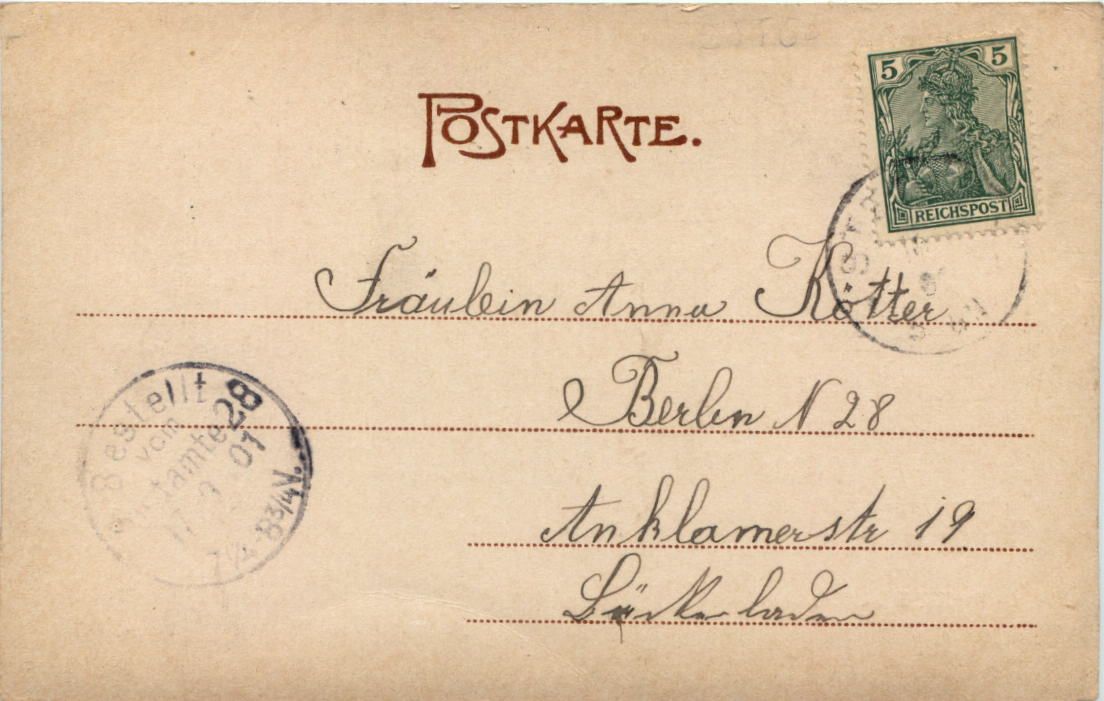 POSTKARTE.
5 5
REICHSPOST
Fräulein Anna Kotter
Berlin N 28
Anklamerstr 19
Bäckerladen
Bestellt
vom
Postamte 28
01
7¼-8¾V.